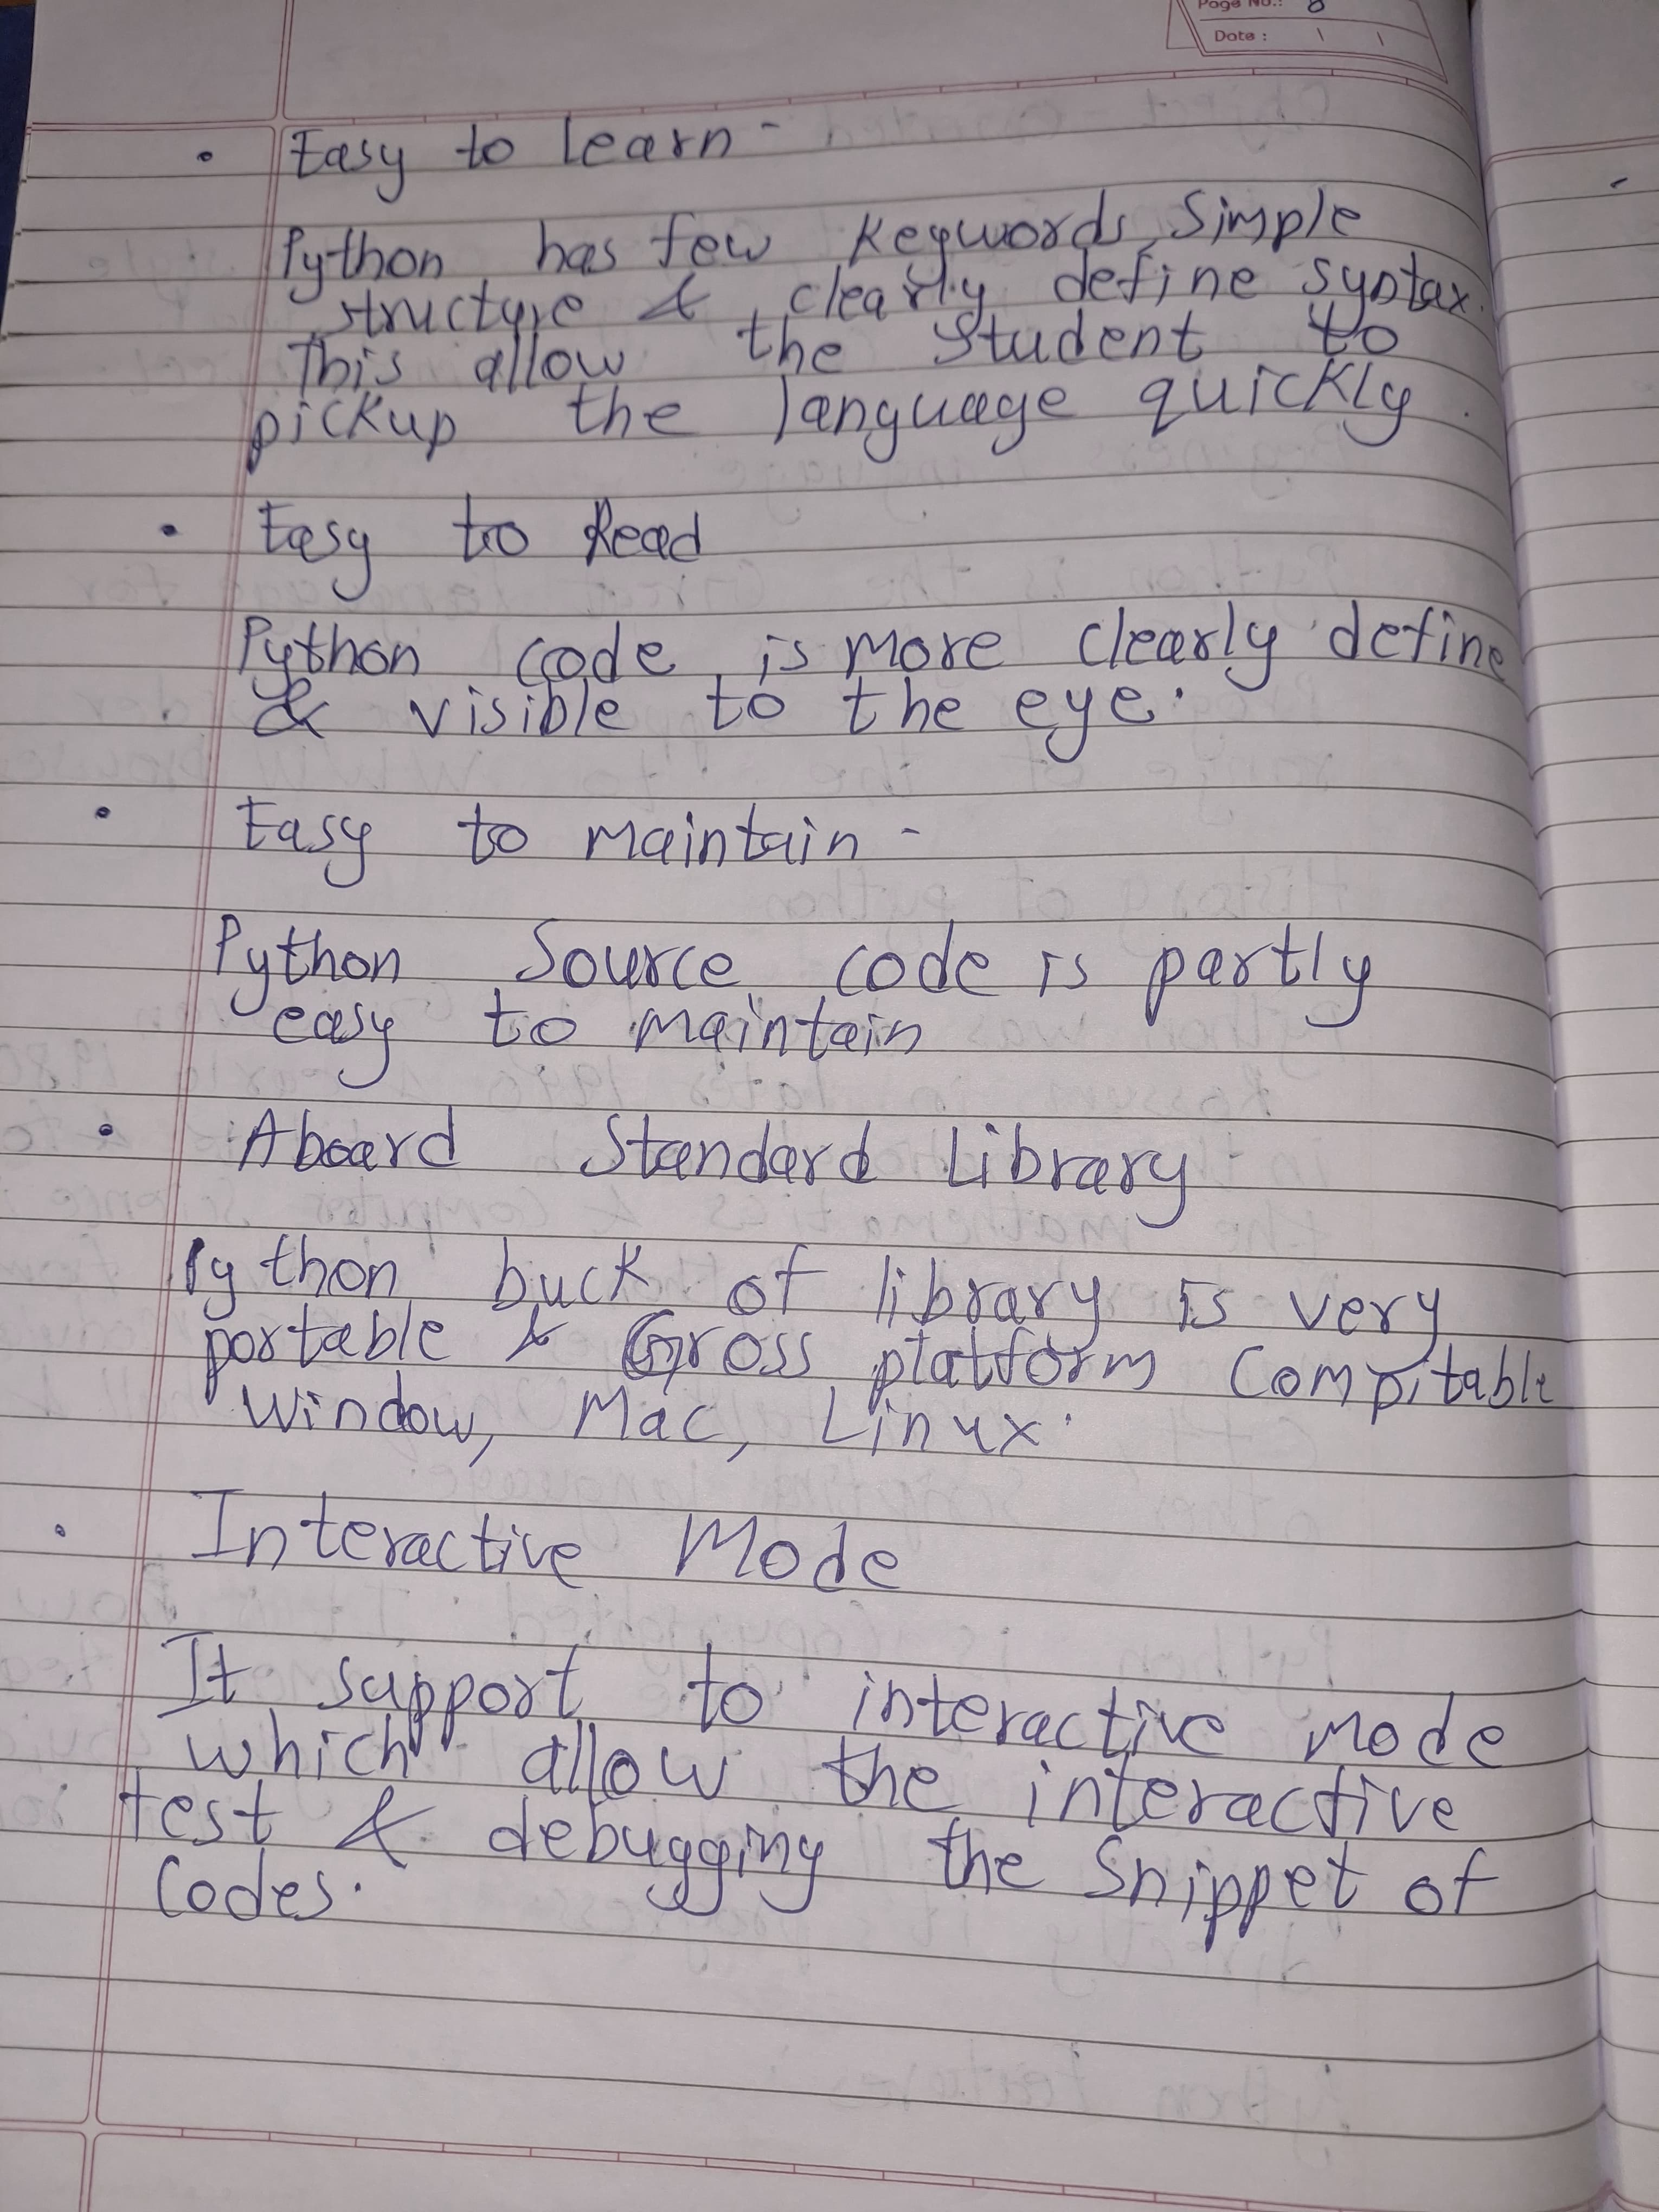 Page No.: 8
Date :
• Easy to learn -
Python has few keywords, Simple
structure & clearly define syntax.
This allow the student to
pickup the language quickly.
• Easy to Read
Python code is more clearly define
& visible to the eye.
• Easy to maintain -
Python Source code is partly
easy to maintain
• Aboard Standard Library
Python buck of library is very
portable & Gross platform Compitable
Window, Mac, Linux.
• Interactive Mode
It support to interactive mode
which allow the interactive
test & debugging the Snippet of
Codes.